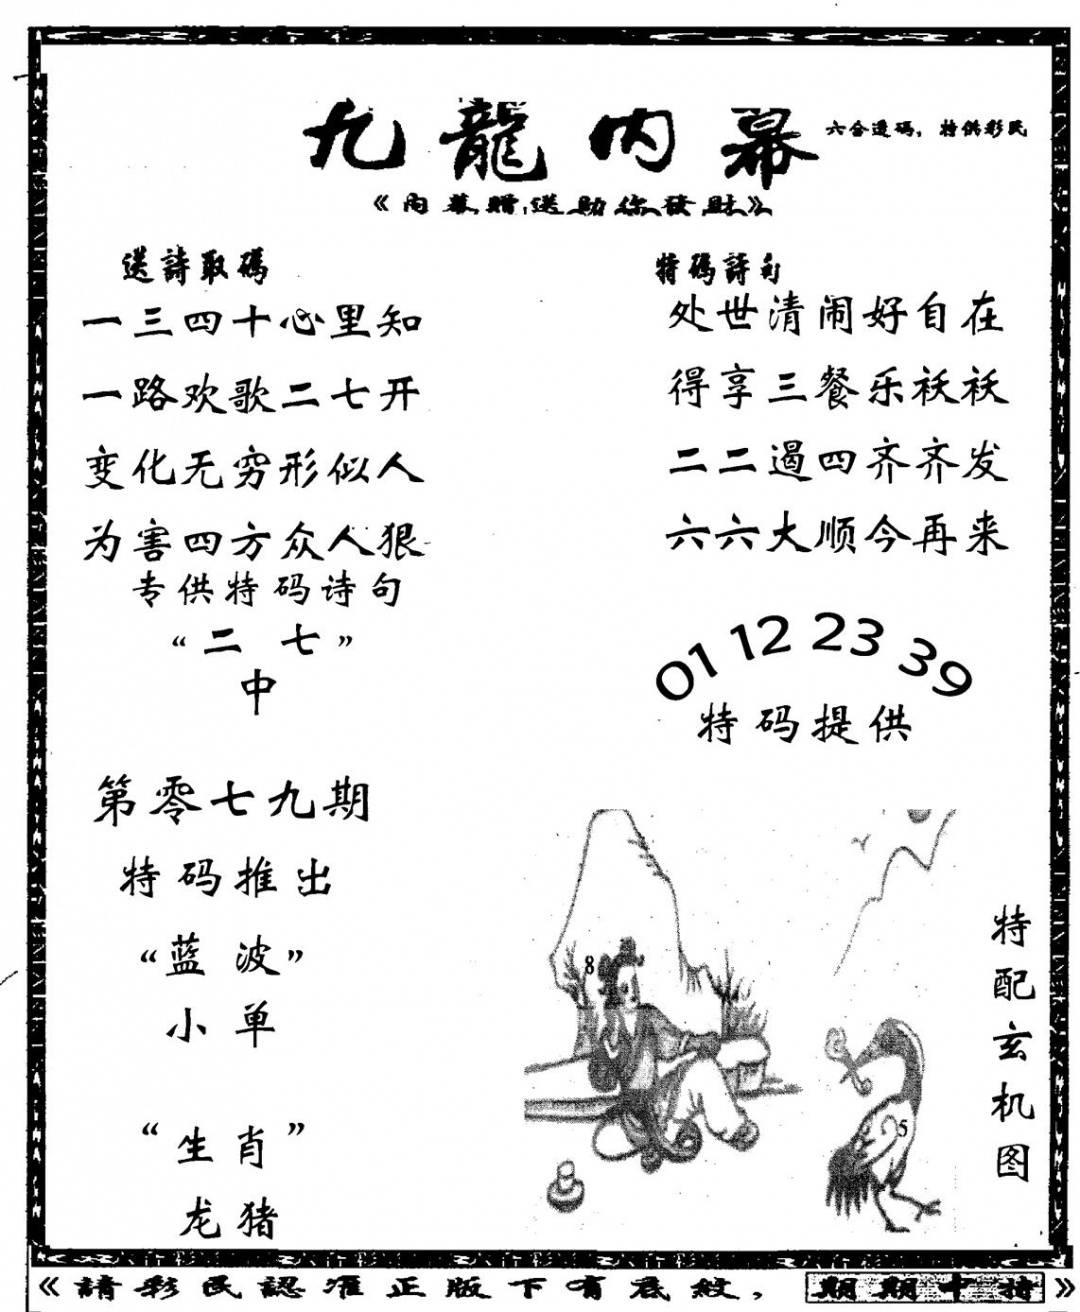 九龍内幕
六合透碼，特供彩民
《内幕贈送助你發財》
送詩取碼
一三四十心里知
一路欢歌二七开
变化无穷形似人
为害四方众人狠
专供特码诗句
“二 七”
中
第零七九期
特码推出
“蓝 波”
小 单
“生 肖”
龙 猪
特碼詩句
处世清闹好自在
得享三餐乐袄袄
二二遏四齐齐发
六六大顺今再来
01 12 23 39
特码提供
8
5
特配玄机图
《請彩民認准正版下有底紋，期期中特》